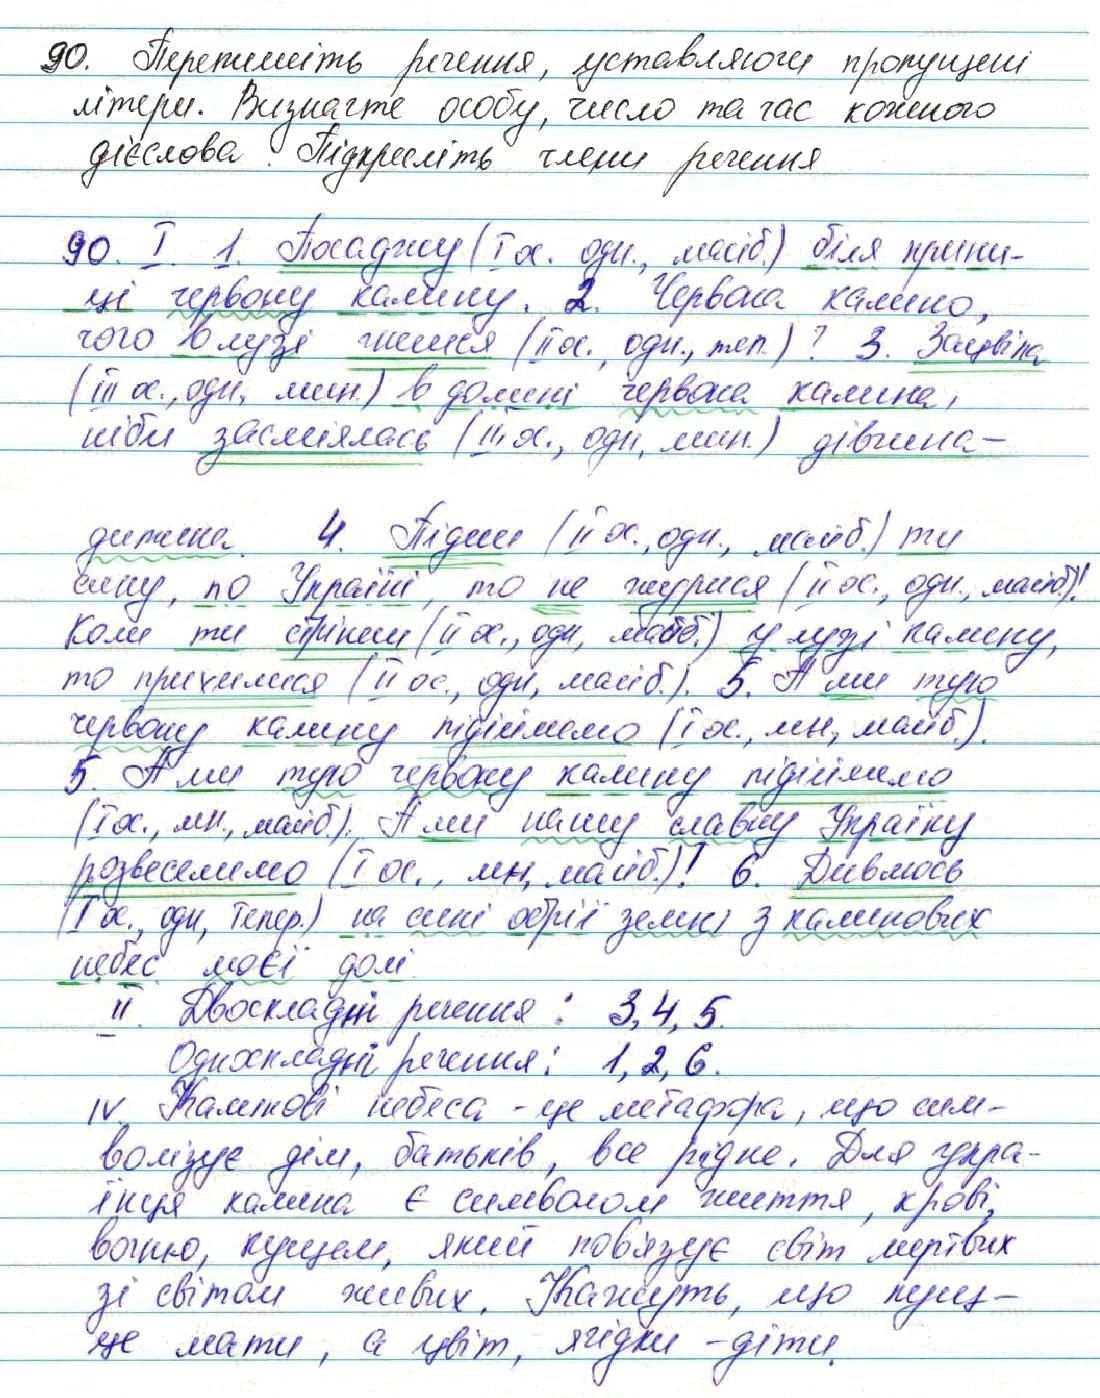 90. Перепишіть речення, уставляючи пропущені
літери. Визначте особу, число та час кожного
дієслова. Підкресліть члени речення
90. I. 1. Посаджу (I ос. одн., майб.) біля крини-
ці червону калину. 2. Червона калино,
чого в лузі гнешся (II ос., одн., теп.)? 3. Зацвіла
(III ос., одн, мин.) в долині червона калина,
ніби засміялась (III ос., одн, мин.) дівчина-
дитина. 4. Підеш (II ос., одн., майб.) ти
сину, по Україні, то не журися (II ос., одн., майб.)!
Коли ти стрінеш (II ос., одн, майб.) у лузі калину,
то прихилися (II ос., одн, майб.). 5. А ми тую
червону калину підіймемо (I ос., мн, майб.).
5. А ми тую червону калину підіймемо
(I ос., мн., майб.). А ми нашу славну Україну
розвеселимо (I ос., мн, майб.)! 6. Дивлюсь
(I ос., одн, тепер.) на сині обрії землі з калинових
небес моєї долі.
II. Двоскладні речення: 3, 4, 5.
Односкладні речення: 1, 2, 6.
IV. Калинові небеса - це метафора, що сим-
волізує дім, батьків, все рідне. Для украї-
їнця калина є символом життя, крові,
вогню, кущем, який пов'язує світ мертвих
зі світом живих. Кажуть, що кущ -
це мати, а цвіт, ягідки - діти.